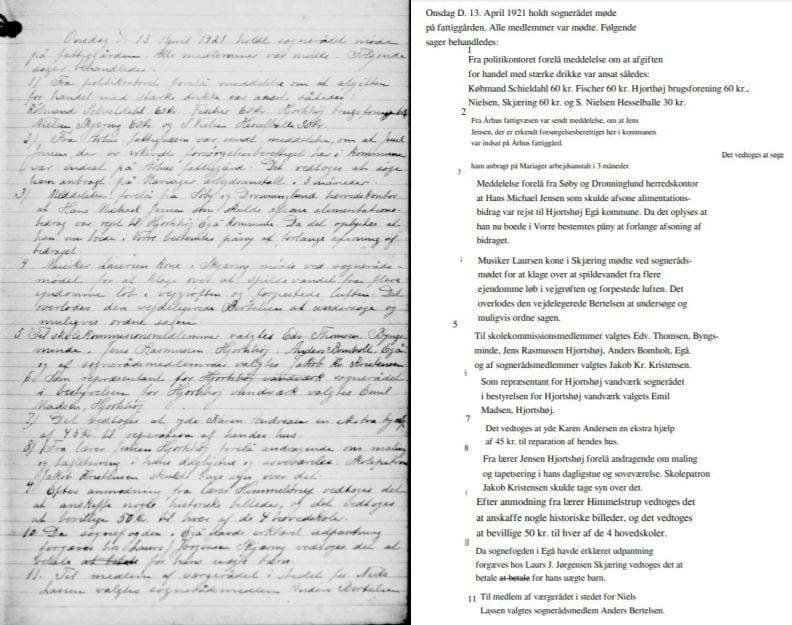 Onsdag D. 13 April 1921 holdt sognerådet møde
på fattiggården. Alle medlemmer var mødte. Følgende
sager behandledes:
1) Fra politikontoret forelå meddelelse om at afgiften
for handel med stærke drikke var ansat således:
Købmand Schieldahl 60 kr. Fischer 60 kr. Hjortshøj brugsforening 60
Nielsen, Skjæring 60 kr. og S. Nielsen Hesselballe 30 kr.
2) Fra Århus fattigvæsen var sendt meddelelse, om at Jens
Jensen, der er erkendt forsørgelsesberettiget her i kommunen
var indsat på Århus fattiggård. Det vedtoges at søge
ham anbragt på Mariager arbejdsanstalt i 3 måneder.
3) Meddelelse forelå fra Søby og Dronninglund herredskontor
at Hans Michael Jensen som skulde afsone alimentations-
bidrag var rejst til Hjortshøj Egå kommune. Da det oplyses at
han nu boede i Vorre bestemtes påny at forlange afsoning af
bidraget.
4 Musiker Laursen kone i Skjæring mødte ved sogneråds-
mødet for at klage over at spildevandet fra flere
ejendomme løb i vejgrøften og forpestede luften. Det
overlodes den vejdelegerede Bertelsen at undersøge og
muligvis ordne sagen.
5 Til skolekommissionsmedlemmer valgtes Edv. Thomsen, Byngs-
minde, Jens Rasmussen Hjortshøj, Anders Bomholt, Egå
og af sognerådsmedlemmer valgtes Jakob Kr. Kristensen
6) Som repræsentant for Hjortshøj vandværk sognerådet
i bestyrelsen for Hjortshøj vandværk valgtes Emil
Madsen, Hjortshøj
7) Det vedtoges at yde Karen Andersen en ekstra hjælp
af 45 kr. til reparation af hendes hus.
8) Fra lærer Jensen Hjortshøj forelå andragende om maling
og tapetsering i hans dagligstue og soveværelse. Skolepatron
Jakob Kristensen skulde tage syn over det.
9 Efter anmodning fra lærer Himmelstrup vedtoges det
at anskaffe nogle historiske billeder, og det vedtoges
at bevillige 50 kr. til hver af de 4 hovedskoler.
10 Da sognefogden i Egå havde erklæret udpantning
forgæves hos Laurs J. Jørgensen Skjæring vedtoges det at
betale at betale for hans uægte barn.
11. Til medlem af værgerådet i stedet for Niels
Lassen valgtes sognerådsmedlem Anders Bertelsen
Onsdag D. 13. April 1921 holdt sognerådet møde
på fattiggården. Alle medlemmer var mødte. Følgende
sager behandledes:
1
Fra politikontoret forelå meddelelse om at afgiften
for handel med stærke drikke var ansat således:
Købmand Schieldahl 60 kr. Fischer 60 kr. Hjortshøj brugsforening 60 kr.,
Nielsen, Skjæring 60 kr. og S. Nielsen Hesselballe 30 kr.
2
Fra Århus fattigvæsen var sendt meddelelse, om at Jens
Jensen, der er erkendt forsørgelsesberettiget her i kommunen
var indsat på Århus fattiggård.
Det vedtoges at søge
ham anbragt på Mariager arbejdsanstalt i 3 måneder.
3
Meddelelse forelå fra Søby og Dronninglund herredskontor
at Hans Michael Jensen som skulde afsone alimentations-
bidrag var rejst til Hjortshøj Egå kommune. Da det oplyses at
han nu boede i Vorre bestemtes påny at forlange afsoning af
bidraget.
Musiker Laursen kone i Skjæring mødte ved sogneråds-
mødet for at klage over at spildevandet fra flere
ejendomme løb i vejgrøften og forpestede luften. Det
overlodes den vejdelegerede Bertelsen at undersøge og
muligvis ordne sagen.
5
Til skolekommissionsmedlemmer valgtes Edv. Thomsen, Byngs-
minde, Jens Rasmussen Hjortshøj, Anders Bomholt, Egå.
og af sognerådsmedlemmer valgtes Jakob Kr. Kristensen.
6
Som repræsentant for Hjortshøj vandværk sognerådet
i bestyrelsen for Hjortshøj vandværk valgtes Emil
Madsen, Hjortshøj.
7
Det vedtoges at yde Karen Andersen en ekstra hjælp
af 45 kr. til reparation af hendes hus.
8
Fra lærer Jensen Hjortshøj forelå andragende om maling
og tapetsering i hans dagligstue og soveværelse. Skolepatron
Jakob Kristensen skulde tage syn over det.
Efter anmodning fra lærer Himmelstrup vedtoges det
at anskaffe nogle historiske billeder, og det vedtoges
at bevillige 50 kr. til hver af de 4 hovedskoler.
10
Da sognefogden i Egå havde erklæret udpantning
forgæves hos Laurs J. Jørgensen Skjæring vedtoges det at
betale at betale for hans uægte barn.
11 Til medlem af værgerådet i stedet for Niels
Lassen valgtes sognerådsmedlem Anders Bertelsen.